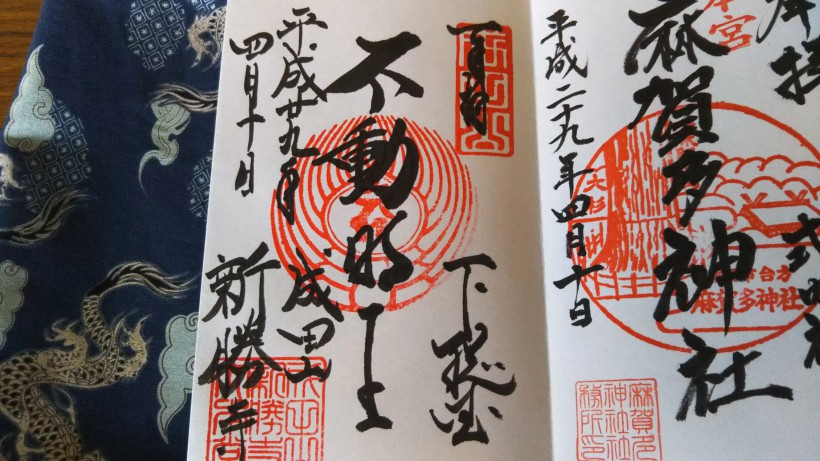 奉拝
式内社
麻賀多神社
大杉
台方
麻賀多神社
麻賀多神社社務所印
平成二十九年四月十日
奉拝
不動明王
平成廿九年
四月十日
成田山
新勝寺